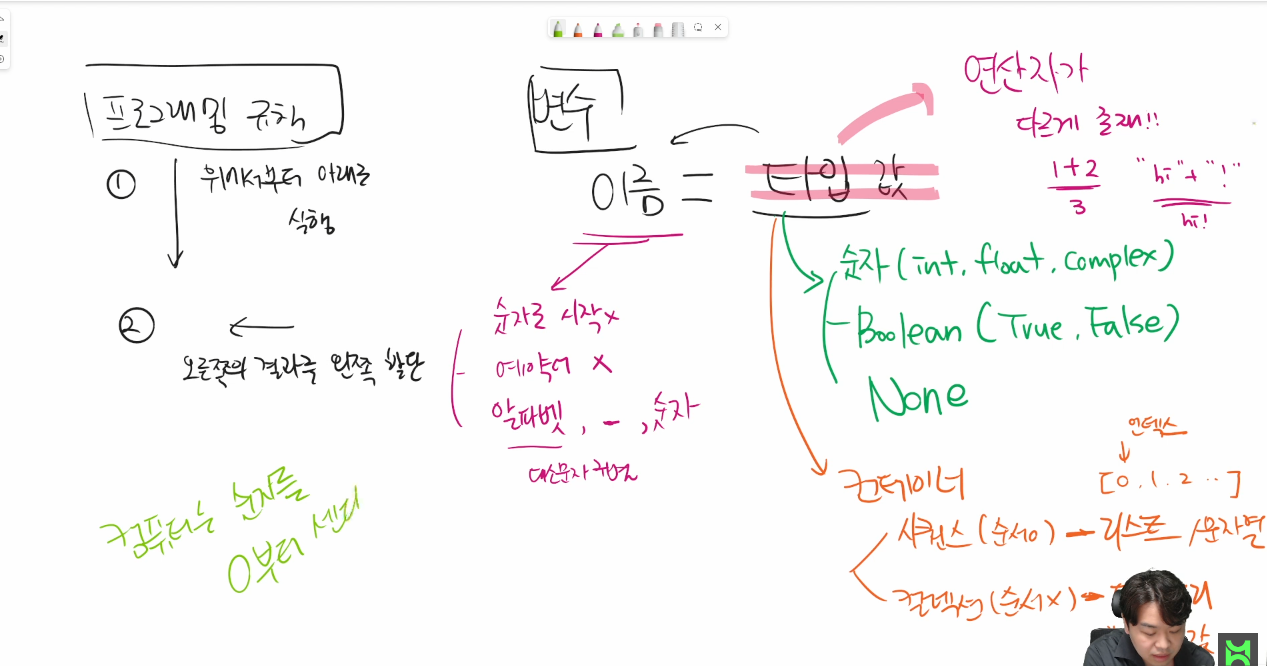 프로그래밍 규칙
①
위에서부터 아래로
실행
②
오른쪽의 결과를 왼쪽 할당
컴퓨터는 숫자를
0부터 센다
변수
이름 = 타입 값
숫자로 시작 x
예약어 x
알파벳, _, 숫자
대소문자 구별
연산자가
다르게 존재!!
1+2
3
"hi"+"!"
hi!
숫자 (int, float, complex)
Boolean (True, False)
None
컨테이너
인덱스
[0, 1, 2 ...]
시퀀스 (순서o) 리스트 / 문자열
컬렉션 (순서x)